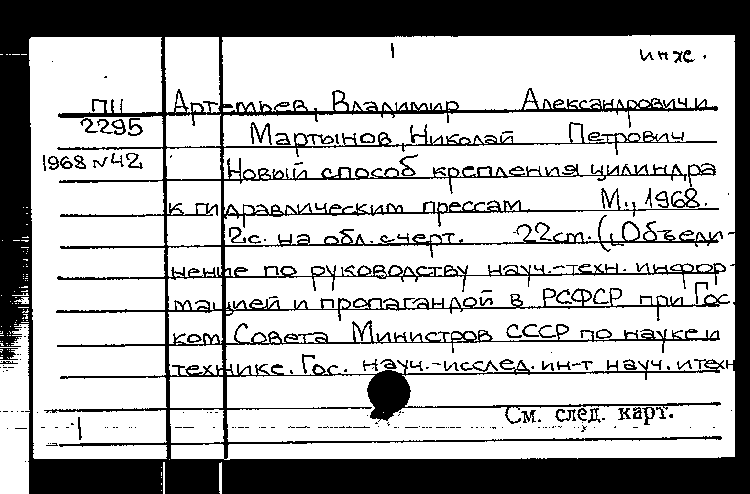 1
инже.
ПII Артемьев, Владимир Александрович и
2295 Мартынов, Николай Петрович
1968 N42 Новый способ крепления цилиндра
к гидравлическим прессам М., 1968.
2с. на обл. с черт. 22см. („Объеди-
нение по руководству науч.-техн. инфор-
мацией и пропагандой в РСФСР при Гос.
ком. Совета Министров СССР по науке и
технике. Гос. науч.-исслед. ин-т науч. и техн
См. след. карт.
1